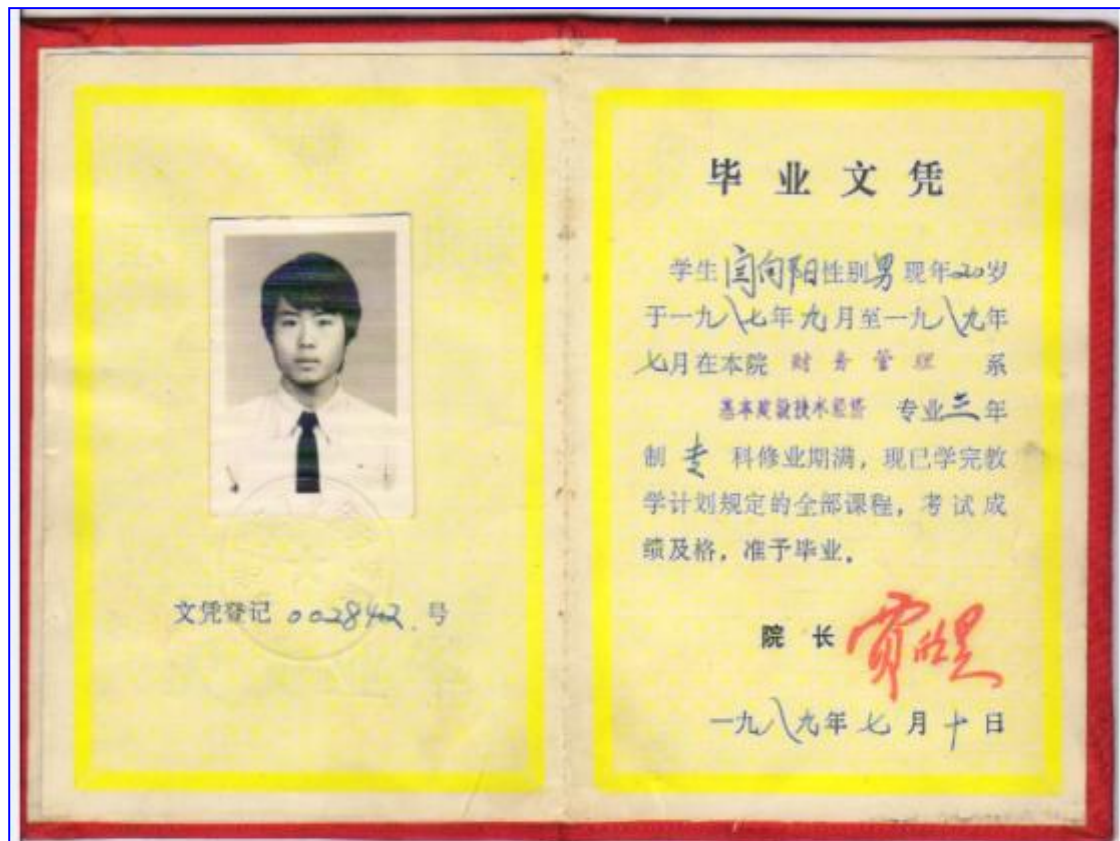 文凭登记 0028402 号
毕业文凭
学生闫向阳性别男现年20岁
于一九八七年九月至一九八九年
七月在本院 财务管理 系
基本建设技术经济 专业二年
制 专 科修业期满，现已学完教
学计划规定的全部课程，考试成
绩及格，准予毕业。
院长
一九八九年七月十日